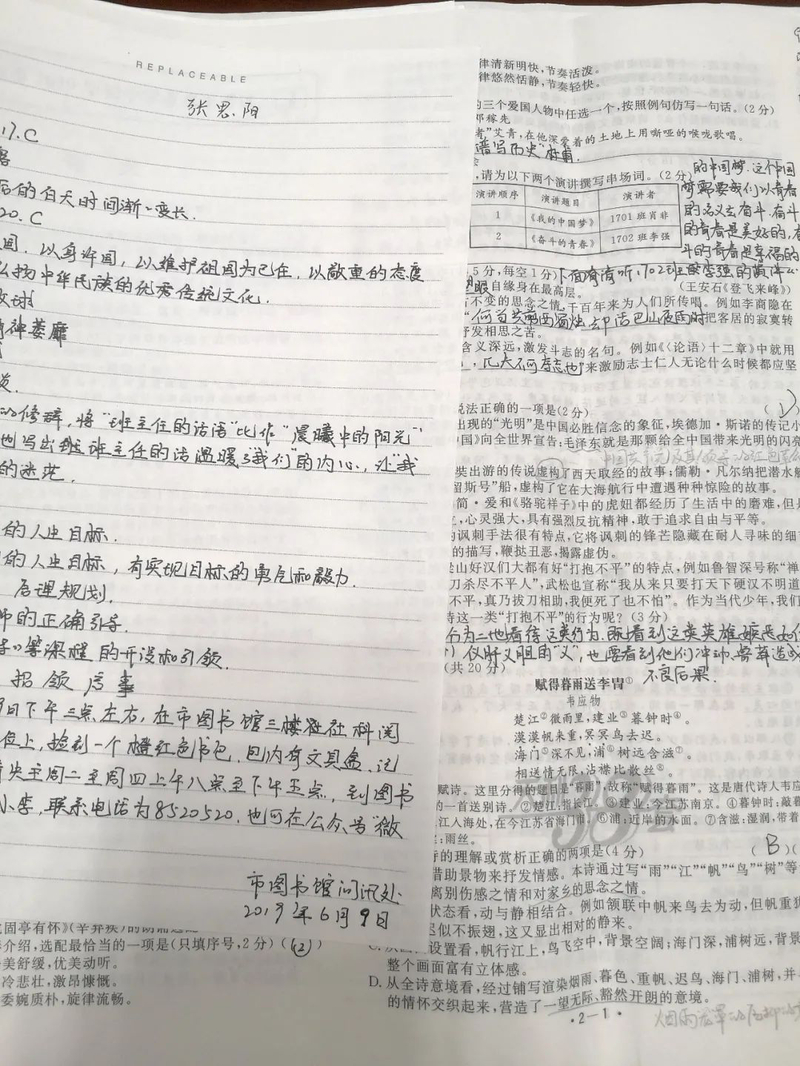 REPLACEABLE
张思阳
17.C
后的白天时间渐渐变长.
20.C
国、以身许国,以维护祖国为己任,以敬重的态度
弘扬中华民族的优秀传统文化.
精神萎靡
的修辞,将“班主任的话语”比作“晨曦中的阳光”
地写出班主任的话温暖了“我们”的内心,让“我
的迷茫.
的人生目标.
的人生目标,有实现目标的勇气和毅力.
合理规划.
师的正确引导.
等课程的开设和引领.
招领启事
9日下午三点左右,在市图书馆三楼社科阅
位上,捡到一个橙红色书包,包内有文具盒、记
请失主周二至周四上午八点至下午五点,到图书
小李,联系电话为8520520.也可在公众号“微
市图书馆问讯处
2019年6月9日
固亭有怀》(辛弃疾)的朗诵选配
介绍,选配最恰当的一项是(只填序号,2分)(②)
美舒缓,优美动听。
冷悲壮,激昂慷慨。
委婉质朴,旋律流畅。
律清新明快,节奏活泼。
律悠然恬静,节奏轻快。
的三个爱国人物中任选一个,按照例句仿写一句话。(2分)
邓稼先
者”艾青,在他深爱着的土地上用嘶哑的喉咙歌唱。
谱写历史”杜甫
,请为以下两个演讲撰写串场词。(2分)
演讲顺序 演讲题目 演讲者
1 《我的中国梦》 1701班肖非
2 《奋斗的青春》 1702班李强
的中国梦.这个中国
梦需要我们以青春
的名义去奋斗.奋斗
的青春是美好的,奋
斗的青春是幸福的
5分,每空1分)下面有请听1702班李强的演讲
自缘身在最高层。 (王安石《登飞来峰》)
不变的思念之情,千百年来为人们所传唱。例如李商隐在
“何当共剪西窗烛,却话巴山夜雨时把客居的寂寞转
抒发相思之苦。
含义深远,激发斗志的名句。例如《〈论语〉十二章》中就用
,匹夫不可夺志也”来激励志士仁人无论什么时候都应坚
说法正确的一项是(2分)
出现的“光明”是中国必胜信念的象征,埃德加·斯诺的传记小
中国》向全世界宣告:毛泽东就是那颗给全中国带来光明的闪亮
奘出游的传说虚构了西天取经的故事;儒勒·凡尔纳把潜水艇
留斯号”船,虚构了它在大海航行中遭遇种种惊险的故事。
简·爱和《骆驼祥子》中的虎妞都经历了生活中的磨难,但是
,心灵强大,具有强烈反抗精神,敢于追求自由与平等。
的讽刺手法很有特点,它将讽刺的锋芒隐藏在耐人寻味的细
的描写,鞭挞丑恶,揭露虚伪。
梁山好汉们大都有好“打抱不平”的特点,例如鲁智深号称“禅
刀杀尽不平人”,武松也宣称“我从来只要打天下硬汉不明道
不平,真乃拔刀相助,我便死了也不怕”。作为当代少年,我们
待这一类“打抱不平”的行为呢?(3分)
分为二地看待这类行为.既看到这类英雄嫉恶如仇
侠肝义胆的“义”,也要看到他们冲动、鲁莽造成
不良后果.
(共20分)
赋得暮雨送李胄①
韦应物
楚江②微雨里,建业③暮钟时④。
漠漠帆来重,冥冥鸟去迟。
海门⑤深不见,浦⑥树远含滋⑦。
相送情无限,沾襟比散丝⑧。
赋诗。这里分得的题目是“暮雨”,故称“赋得暮雨”。这是唐代诗人韦应
的一首送别诗。②楚江:指长江。③建业:今江苏南京。④暮钟时:敲暮
江入海处,在今江苏省海门市。⑥浦:近岸的水面。⑦含滋:湿润,带着
:雨丝。
诗的理解或赏析正确的两项是(4分) (B)(
借助景物来抒发情感。本诗通过写“雨”“江”“帆”“鸟”“树”等
离别伤感之情和对家乡的思念之情。
状态看,动与静相结合。例如颔联中帆来鸟去为动,但帆重犹
迟似不振翅,这又显出相对的静来。
设置看,帆行江上,鸟飞空中,背景空阔;海门深,浦树远,背景
整个画面富有立体感。
D.从全诗意境看,经过铺写渲染烟雨、暮色、重帆、迟鸟、海门、浦树,并
的情怀交织起来,营造了一望无际、豁然开朗的意境。
·2-1·